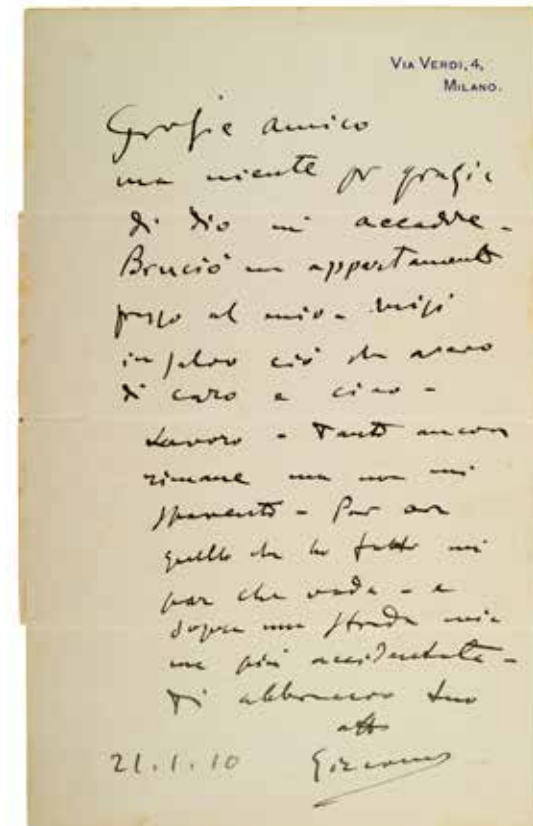 VIA VERDI, 4,
MILANO.
Grazie amico
ma niente pr grazia
di Dio mi accadde -
Bruciò un appartamento
presso al mio - misi
in salvo ciò che avevo
di caro e ciao -
Lavoro - Tanto ancora
rimane ma non mi
spavento - Per ora
quello che ho fatto mi
par che vada - e
sopra una strada mia
ma più accidentata -
Ti abbraccio tuo
aff
Giacomo
21.1.10